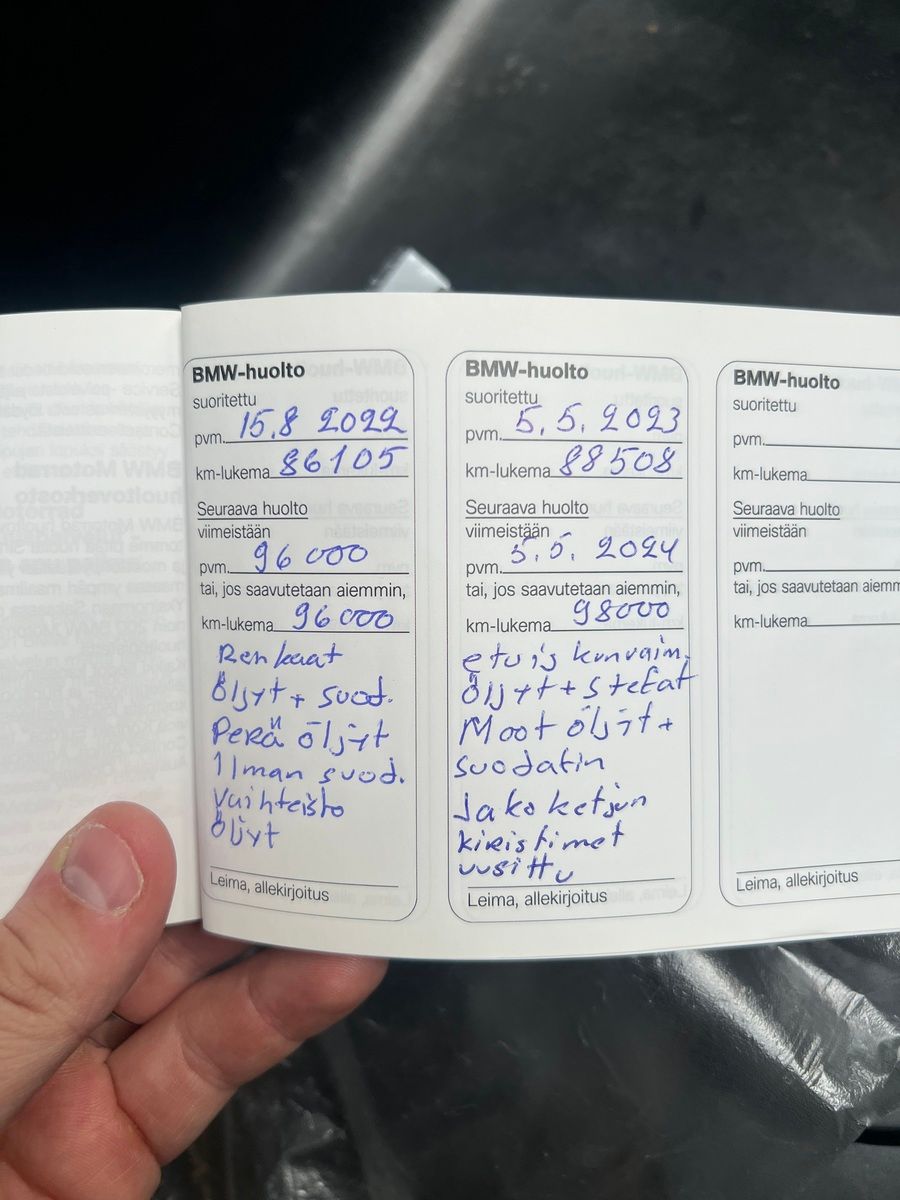 BMW-huolto
suoritettu
pvm. 15.8 2022
km-lukema 86105
Seuraava huolto
viimeistään
pvm. 96000
tai, jos saavutetaan aiemmin,
km-lukema 96000
Renkaat
Öljyt + suod.
Perä öljyt
Ilman suod.
Vaihteisto
Öljyt
Leima, allekirjoitus
BMW-huolto
suoritettu
pvm. 5.5.2023
km-lukema 88508
Seuraava huolto
viimeistään
pvm. 5.5. 2024
tai, jos saavutetaan aiemmin,
km-lukema 98000
etuis kunvaim.
Öljyt + Stefat
Moot öljyt +
suodatin
Jako ketjun
kiristimet
uusittu
Leima, allekirjoitus
BMW-huolto
suoritettu
pvm.
km-lukema
Seuraava huolto
viimeistään
pvm.
tai, jos saavutetaan aiemm
km-lukema
Leima, allekirjoitus